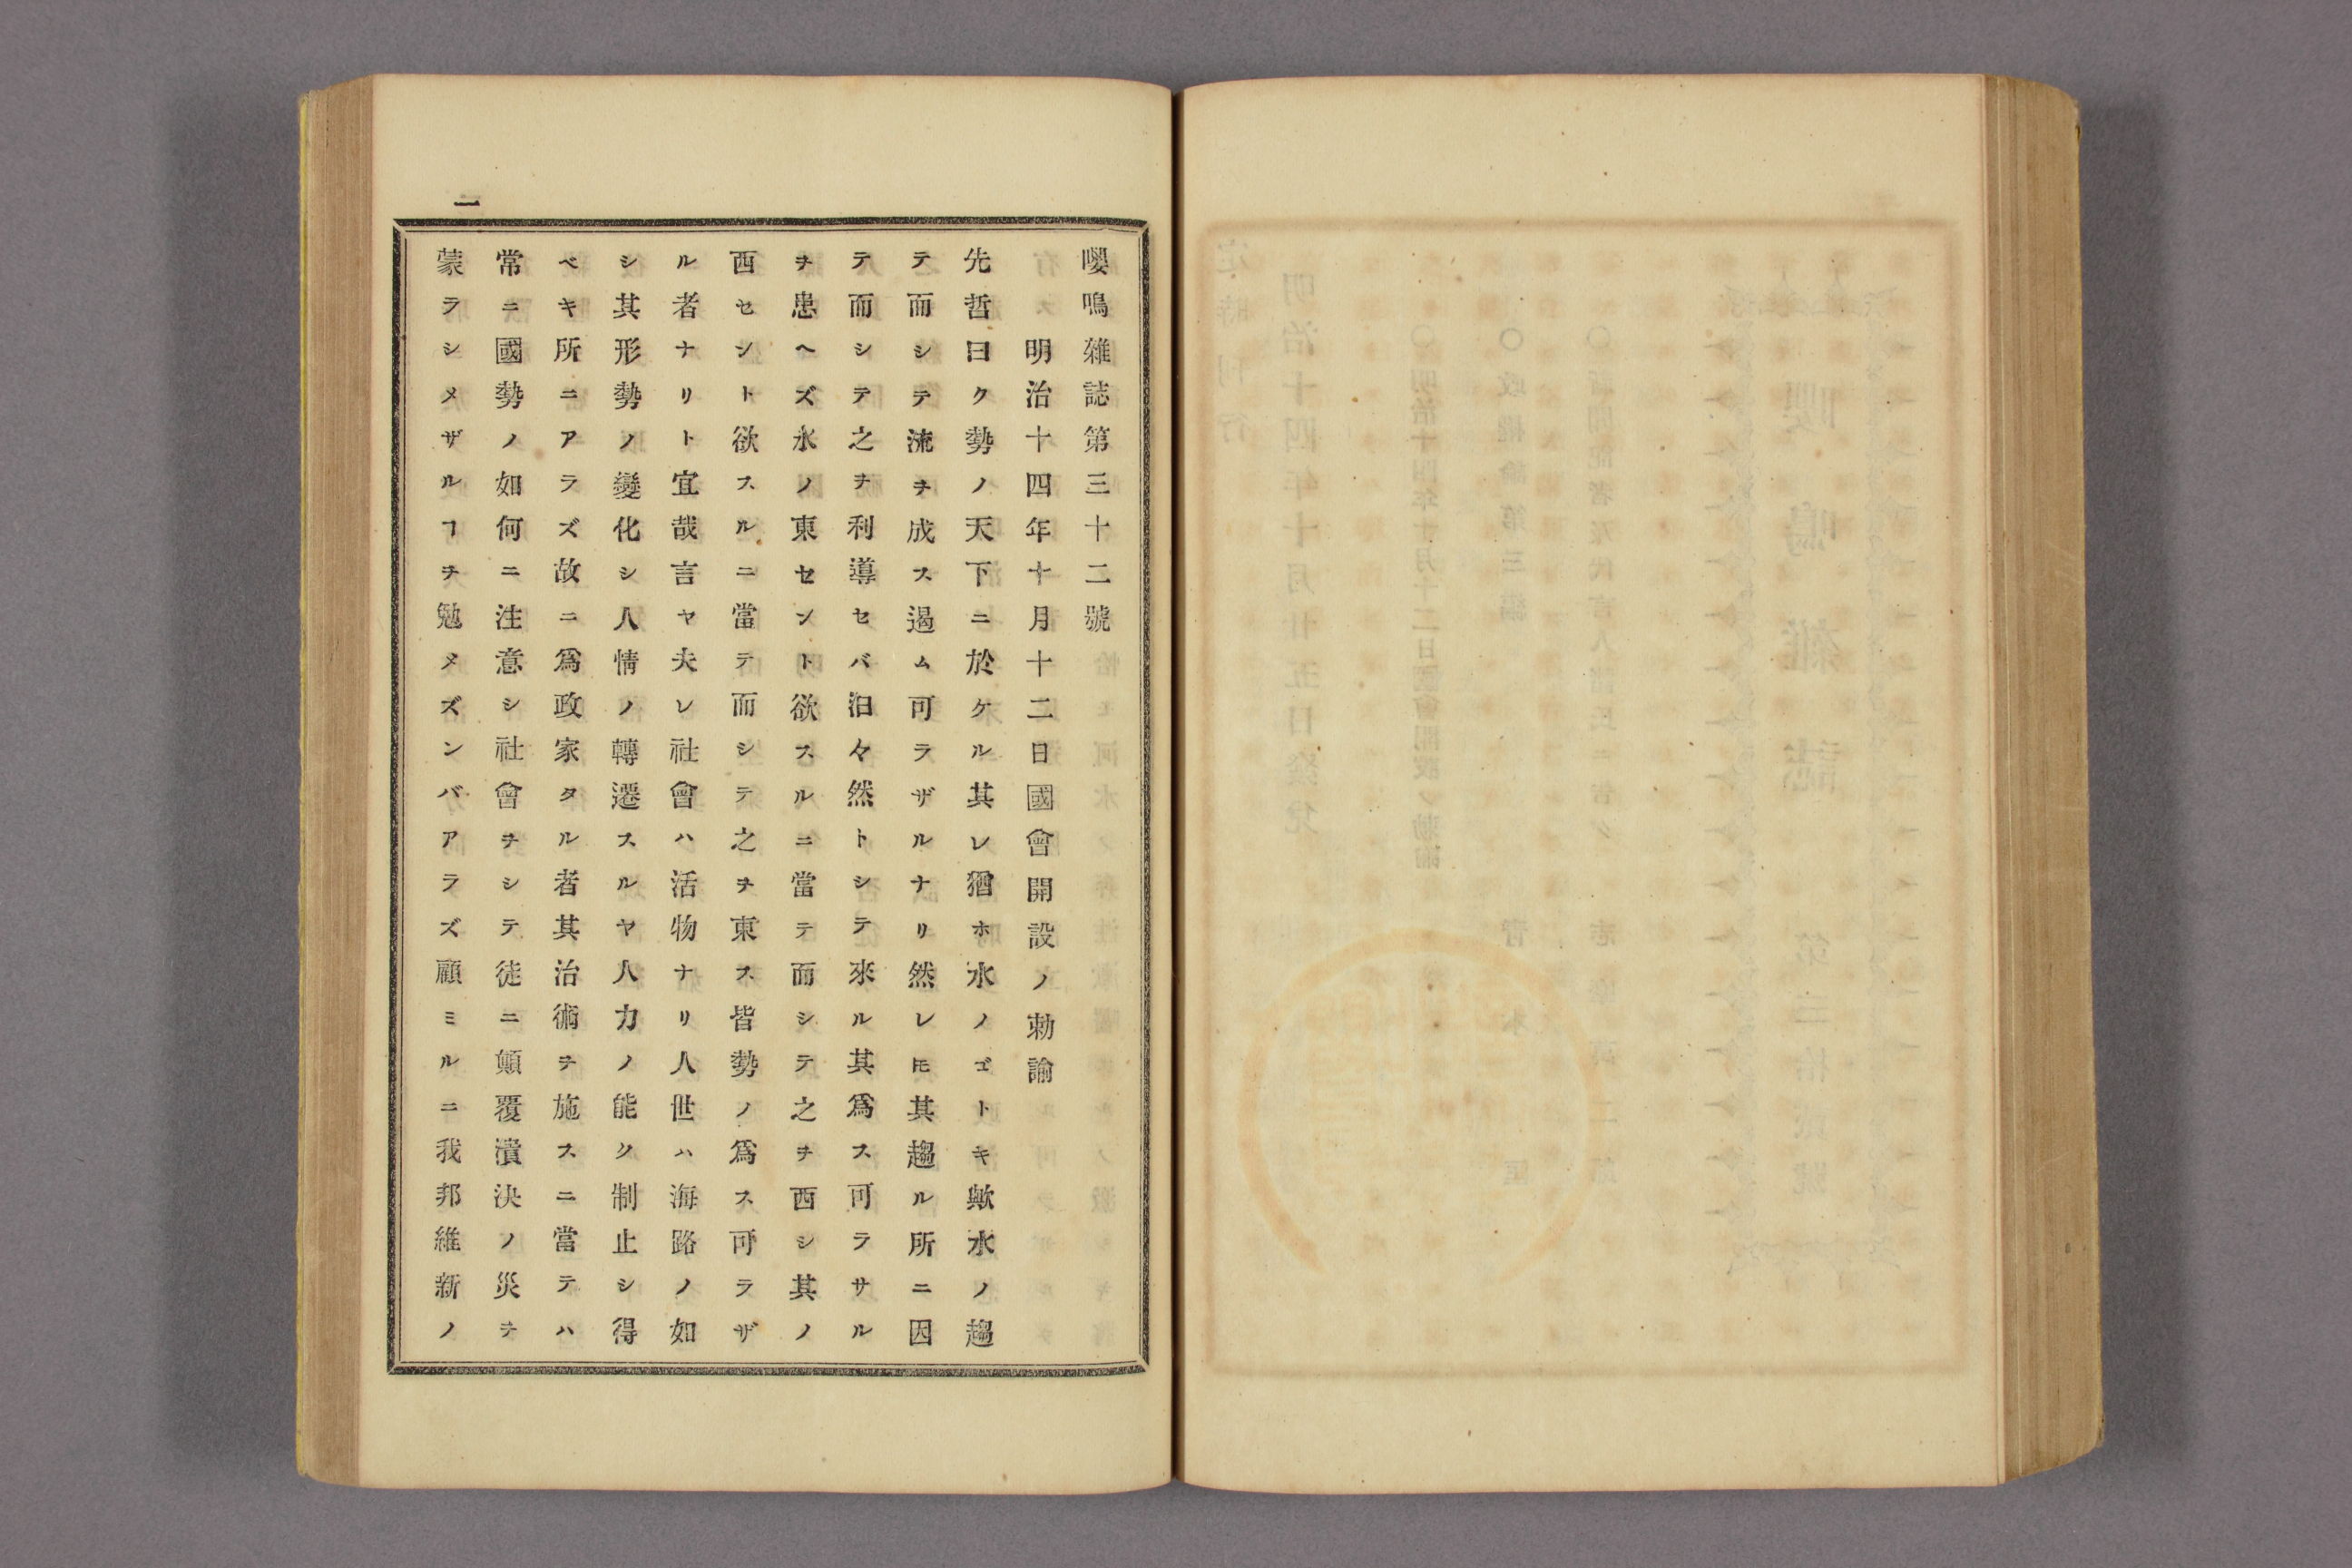 嚶鳴雜誌第三十二號
明治十四年十月十二日國會開設ノ勅諭
先哲曰ク勢ノ天下ニ於ケル其レ猶ホ水ノゴトキ歟水ノ趨
テ而シテ流ヲ成ス遏ム可ラザルナリ然レ𪜈其趨ル所ニ因
テ而シテ之ヲ利導セバ汩々然トシテ來ル其爲ス可ラサル
ヲ患ヘズ水ノ東セント欲スルニ當テ而シテ之ヲ西シ其ノ
西セント欲スルニ當テ而シテ之ヲ東ス皆勢ノ爲ス可ラザ
ル者ナリト宜哉言ヤ夫レ社會ハ活物ナリ人世ハ海路ノ如
シ其形勢ノ變化シ人情ノ轉遷スルヤ人力ノ能ク制止シ得
ベキ所ニアラズ故ニ爲政家タル者其治術ヲ施スニ當テハ
常ニ國勢ノ如何ニ注意シ社會ヲシテ徒ニ顛覆潰決ノ災ヲ
蒙ラシメザルヿヲ勉メズンバアラズ顧ミルニ我邦維新ノ
一